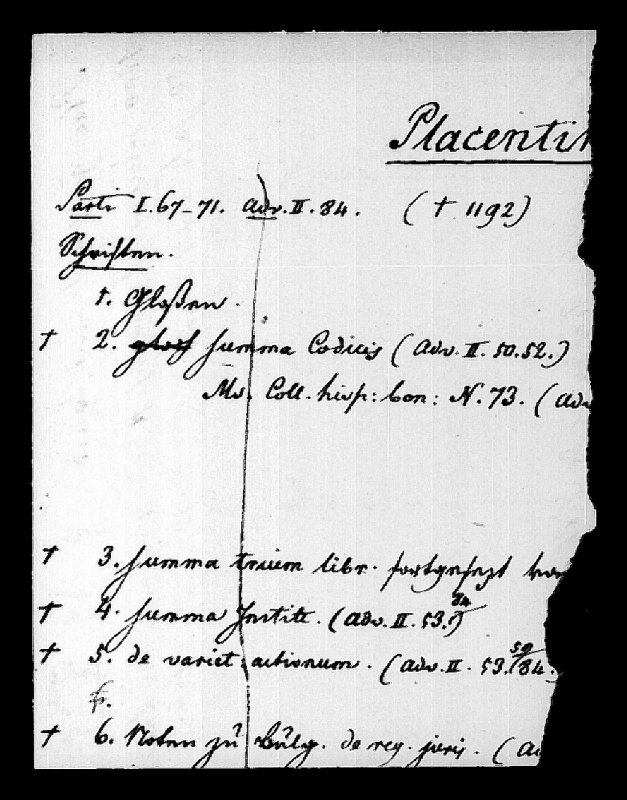 Placentin
Sarti I. 67-71. Adv. II. 84. († 1192)
Schriften.
1. Gloßen.
† 2. Summa Codicis (Adv. II. 50. 52.)
Ms. Coll. hisp: bon: N. 73. (Adv
† 3. Summa trium libr. fortgesezt von
† 4. Summa Institt. (Adv. II. 53.) 84
† 5. de variet. actionum. (Adv. II. 53. 59 84.
† 6. Noten zu Bulg. de reg. juris. (Ad